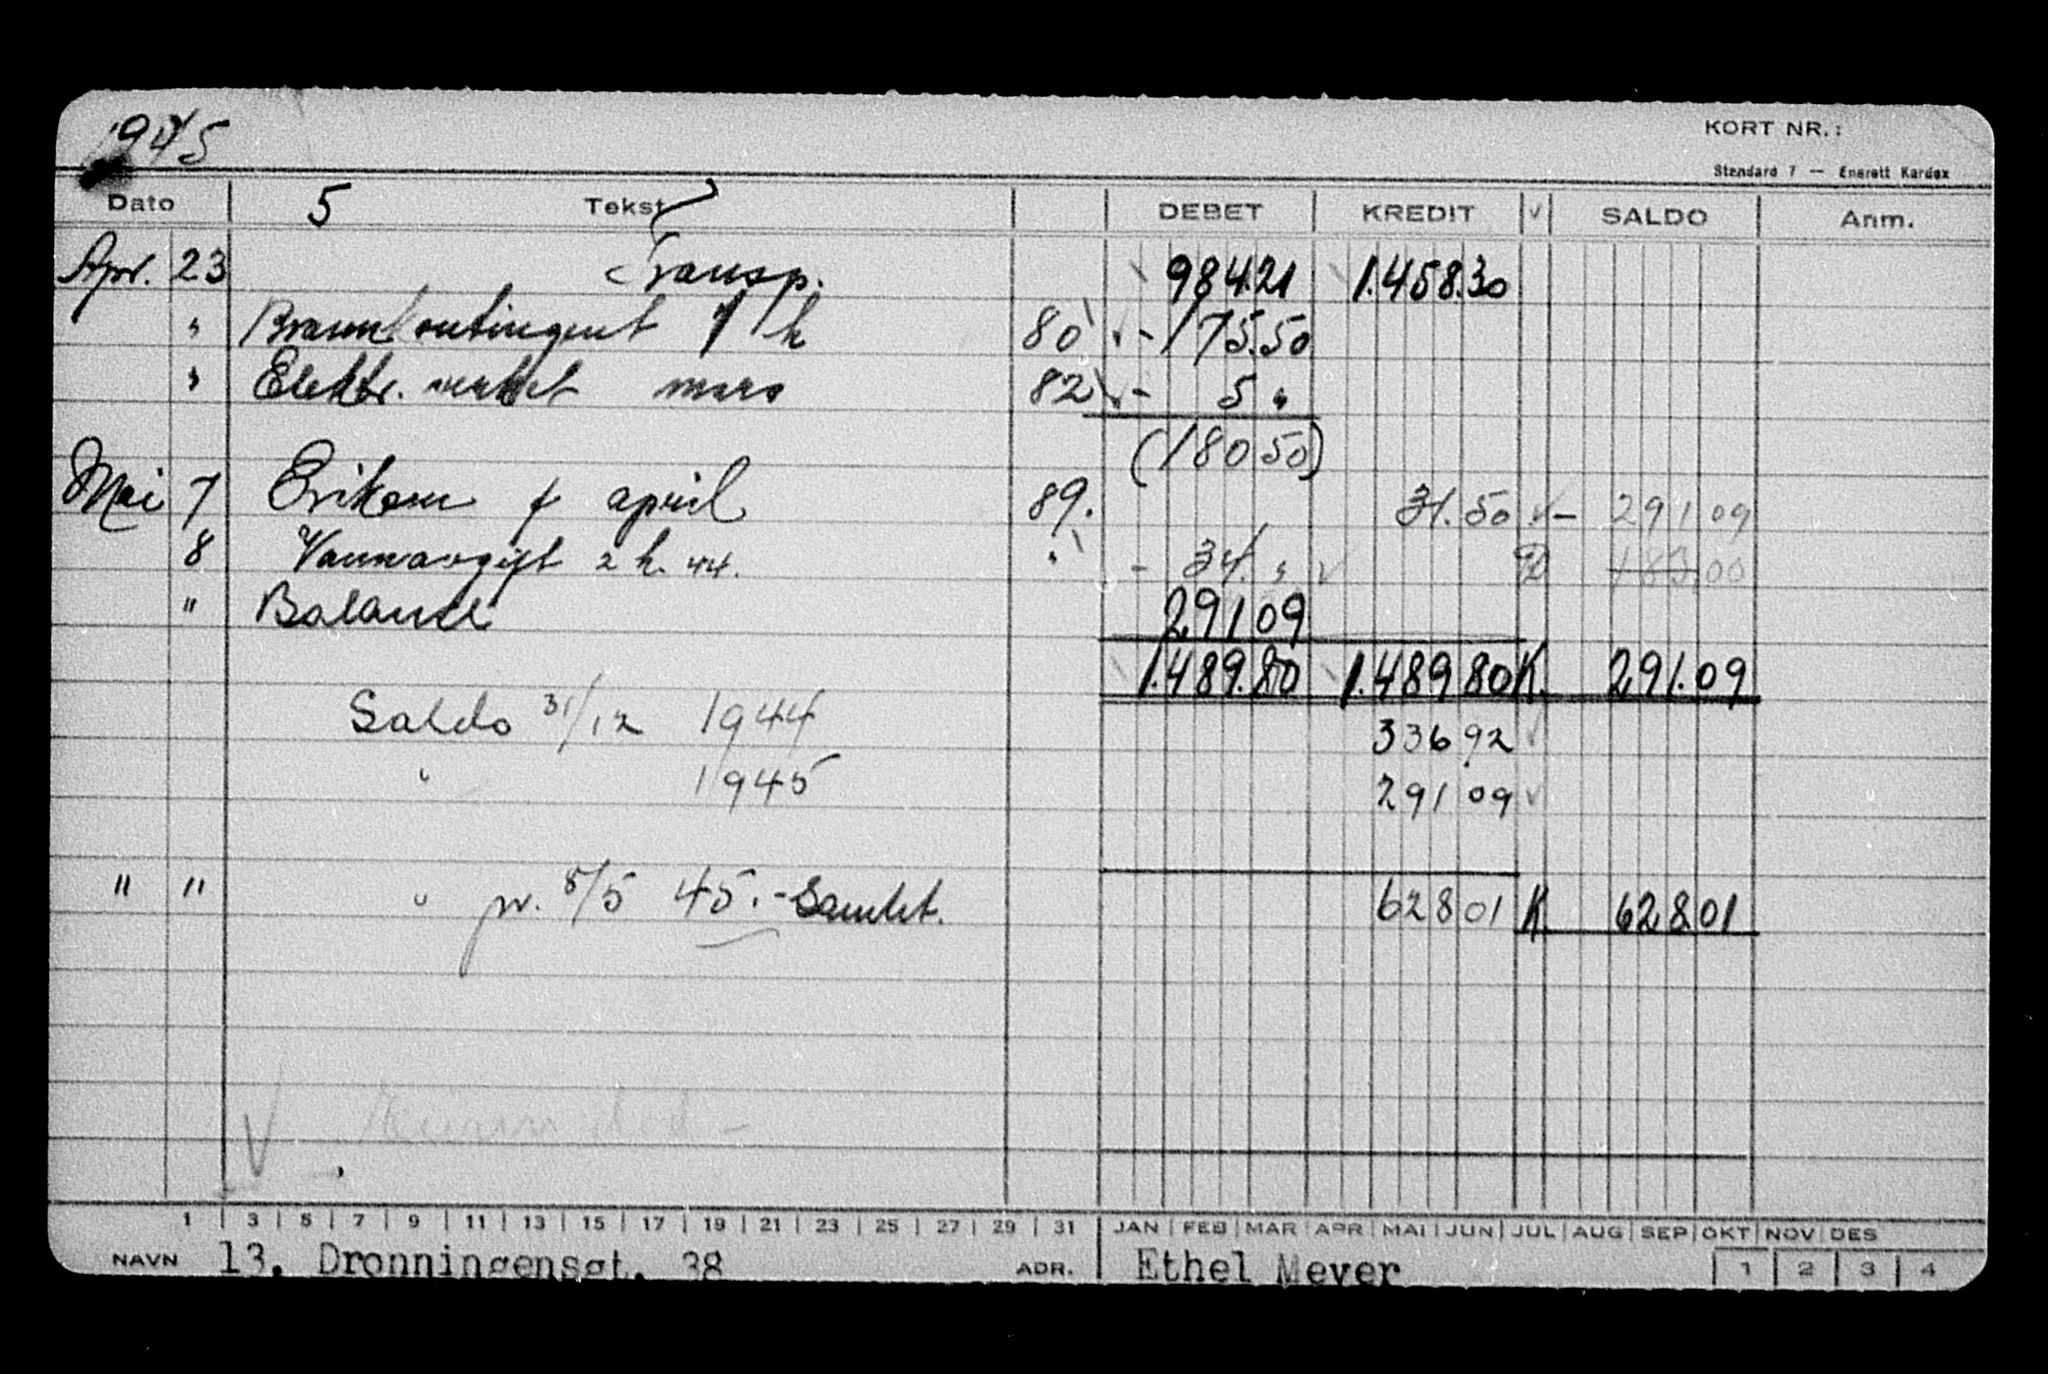 1945
KORT NR.:
Standard 7 — Enerett Kardex
Dato 5 Tekst DEBET KREDIT √ SALDO Anm.
Apr. 23 Transp. 984.21 1.458.30
" Brannkontingent 1 h 80 - 175.50
" Elektr. verket mars 82 - 5 "
(180 50)
Mai 7 f april 89. 31.50 √ - 291 09
8 Vannavgift 2 h. 44. " - 34. " √ 183.00
" Balance 291 09
1.489.80 1.489 80 K. 291.09
Saldo 31/12 1944 336 92 √
" 1945 291 09 √
" " " pr. 8/5 45. - Samlet. 628 01 K. 628.01
√
1 3 5 7 9 11 13 15 17 19 21 23 25 27 29 31 JAN FEB MAR APR MAI JUN JUL AUG SEP OKT NOV DES
NAVN 13, Dronningensgt. 38 ADR. Ethel Meyer 1 2 3 4